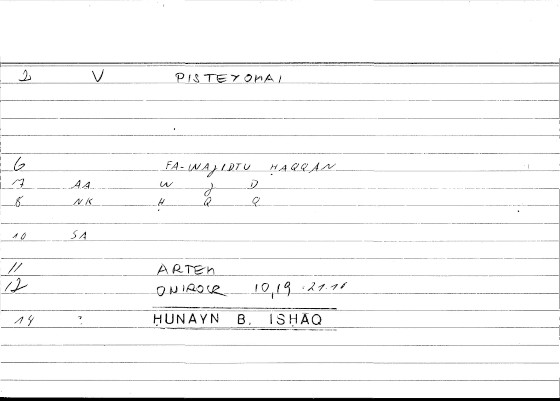 2 V PISTEYOMAI
6 FA-WAJIDTU HAQQAN
7 AA W J D
8 NK H Q Q
10 SA
11 ARTEM
12 ONIROCR 10,19 -21.16
14 : HUNAYN B. ISHAQ